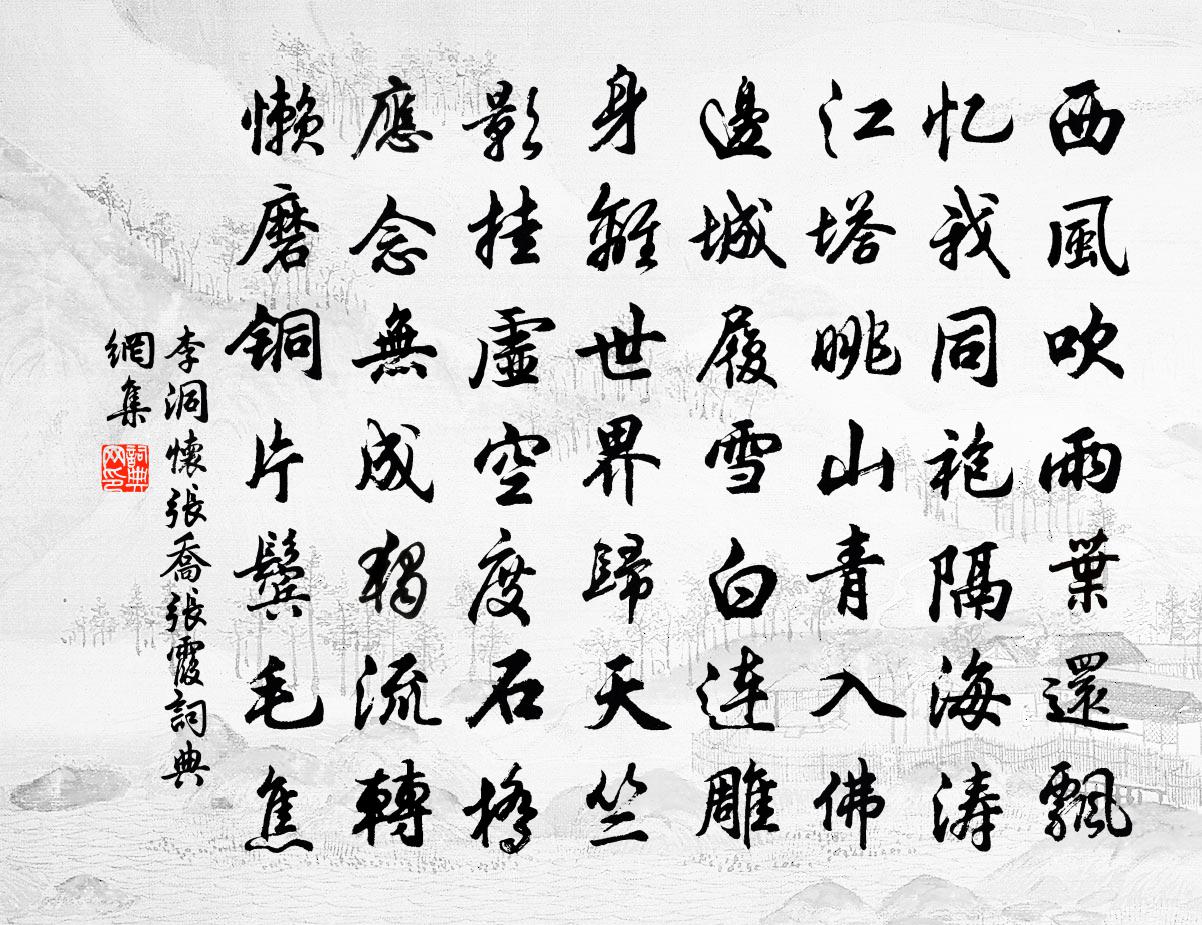 西風吹雨葉還飄
忆我同袍隔海涛
江塔眺山青入佛
邊城履雪白连雕
身離世界歸天竺
影挂虛空度石橋
應念無成獨流轉
懶磨銅片鬓毛焦
李洞懷張喬張霞詞典
網集
詞典网印